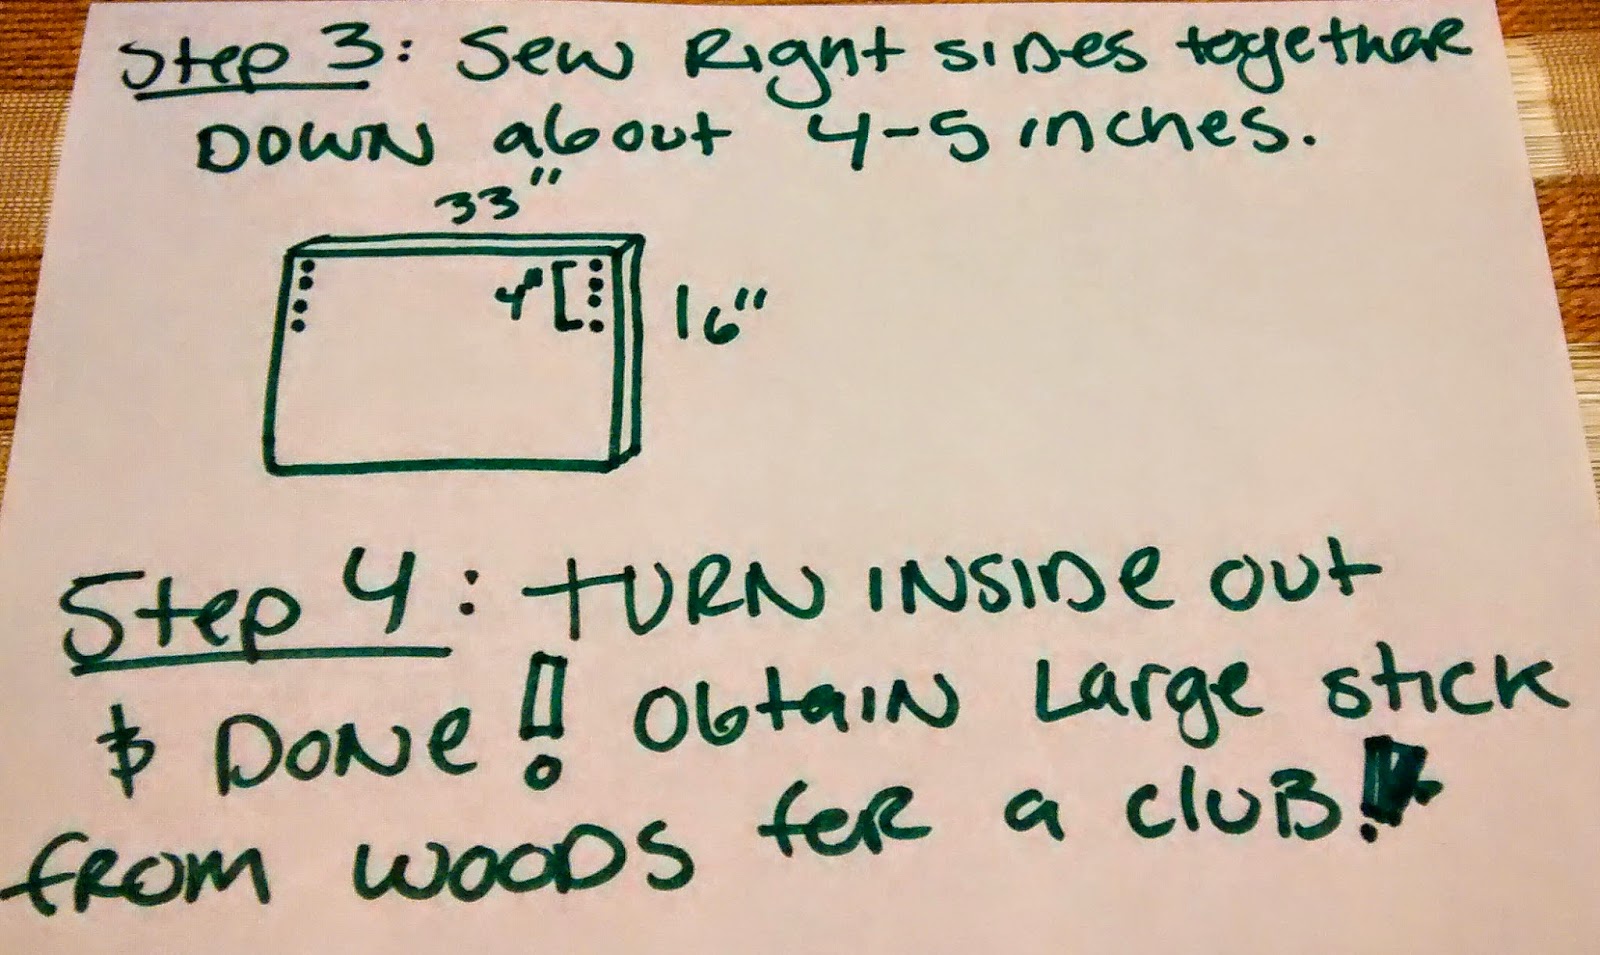 Step 3: Sew Right sides together
DOWN about 4-5 inches.
33"
4"
16"
Step 4: TURN INSIDE OUT
& DONE! Obtain Large stick
from WOODS fer a cluB!